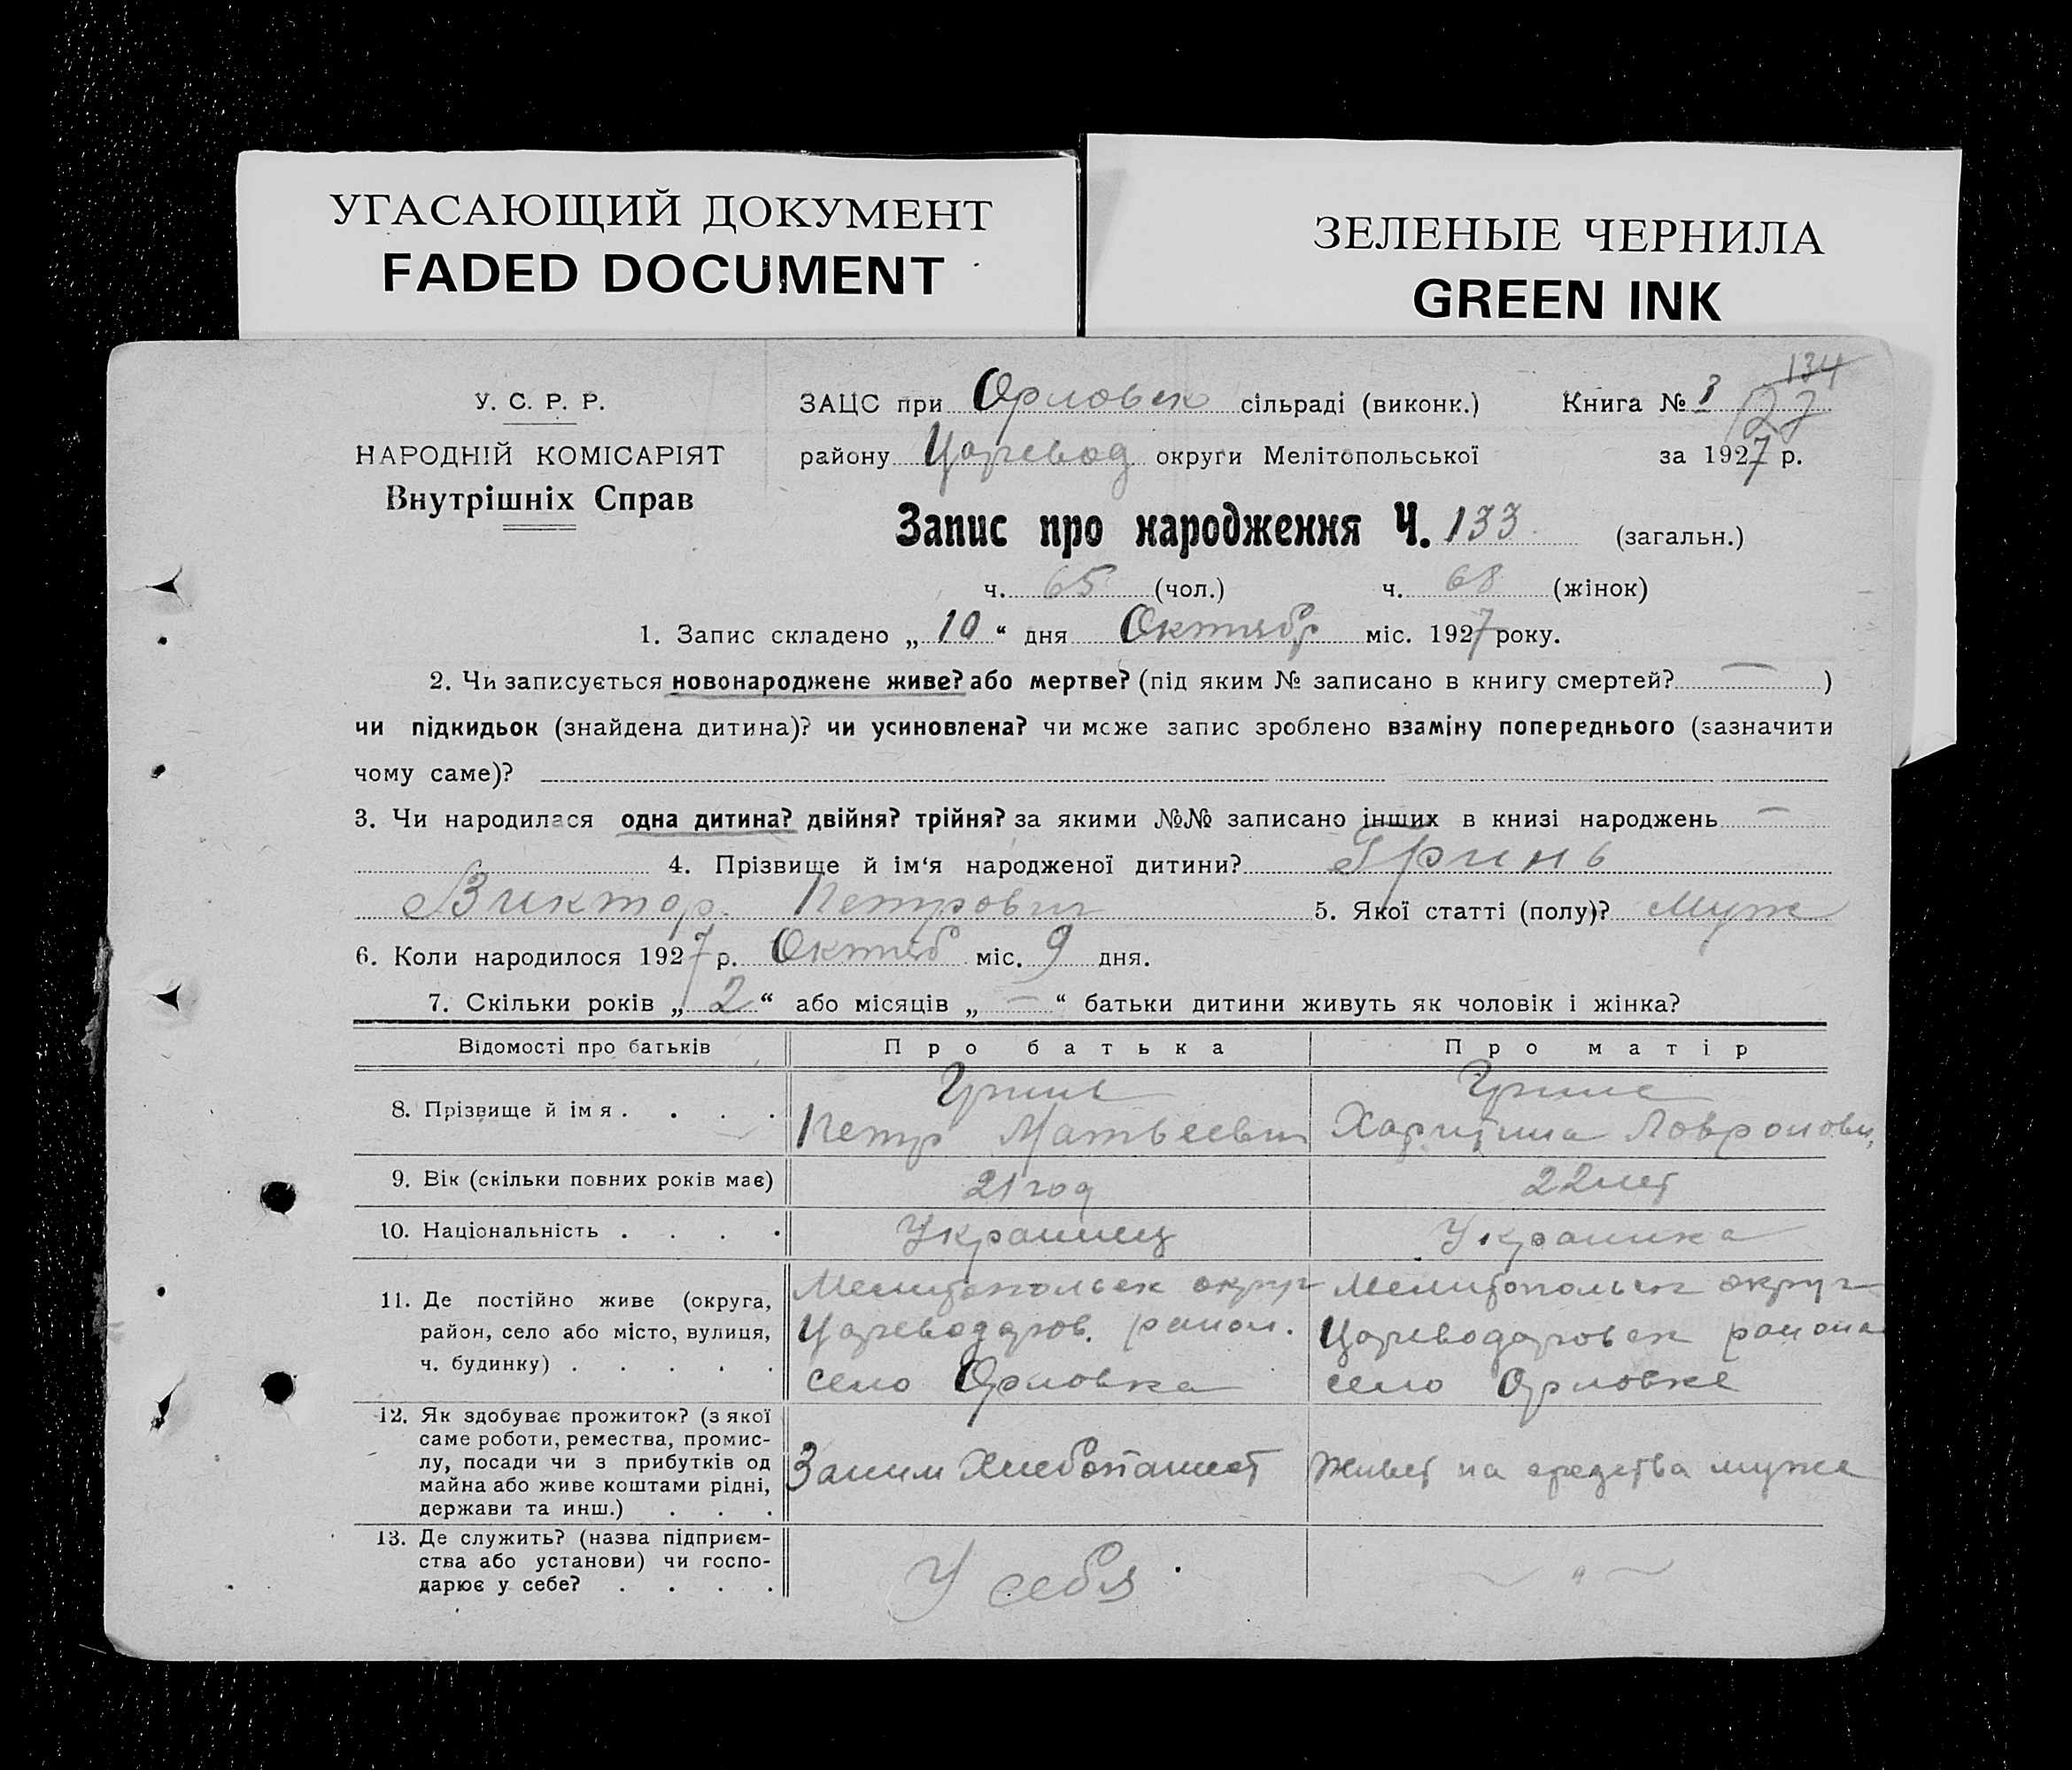 УГАСАЮЩИЙ ДОКУМЕНТ
FADED DOCUMENT
ЗЕЛЕНЫЕ ЧЕРНИЛА
GREEN INK
У. С. Р. Р.
НАРОДНІЙ КОМІСАРІЯТ
Внутрішніх Справ
ЗАЦС при Орловск сільраді (виконк.) Книга № 3 134 127
району Царевод округи Мелітопольської за 1927 р.
Запис про народження Ч. 133 (загальн.)
ч. 65 (чол.) ч. 68 (жінок)
1. Запис складено „ 10 “ дня Октябр міс. 1927 року.
2. Чи записується новонароджене живе? або мертве? (під яким № записано в книгу смертей? — )
чи підкидьок (знайдена дитина)? чи усиновлена? чи може запис зроблено взаміну попереднього (зазначити
чому саме)?
3. Чи народилася одна дитина? двійня? трійня? за якими №№ записано інших в книзі народжень —
4. Прізвище й ім‘я народженої дитини? Гринь
Виктор Петрович 5. Якої статті (полу)? Муж
6. Коли народилося 1927 р. Октяб міс. 9 дня.
7. Скільки років „ 2 “ або місяців „ — “ батьки дитини живуть як чоловік і жінка?
Відомості про батьків Про батька Про матір
8. Прізвище й імя . . . . Гринь Гринь
Петр Матвеевич Харитина
9. Вік (скільки повних років має) 21 год 22 лет
10. Національність . . . . Украинец Украинка
11. Де постійно живе (округа, Мелитопольск округ Мелитопольск округ
район, село або місто, вулиця, Цареводаров. район. Цареводаровск района
ч. будинку) . . . . . село Орловка село Орловке
12. Як здобуває прожиток? (з якої
саме роботи, ремества, промис-
лу, посади чи з прибутків од Заним Хлебопашест Живет на средства мужа
майна або живе коштами рідні,
держави та инш.) . . .
13. Де служить? (назва підприєм-
ства або установи) чи госпо- У себя — " —
дарює у себе? . . . .